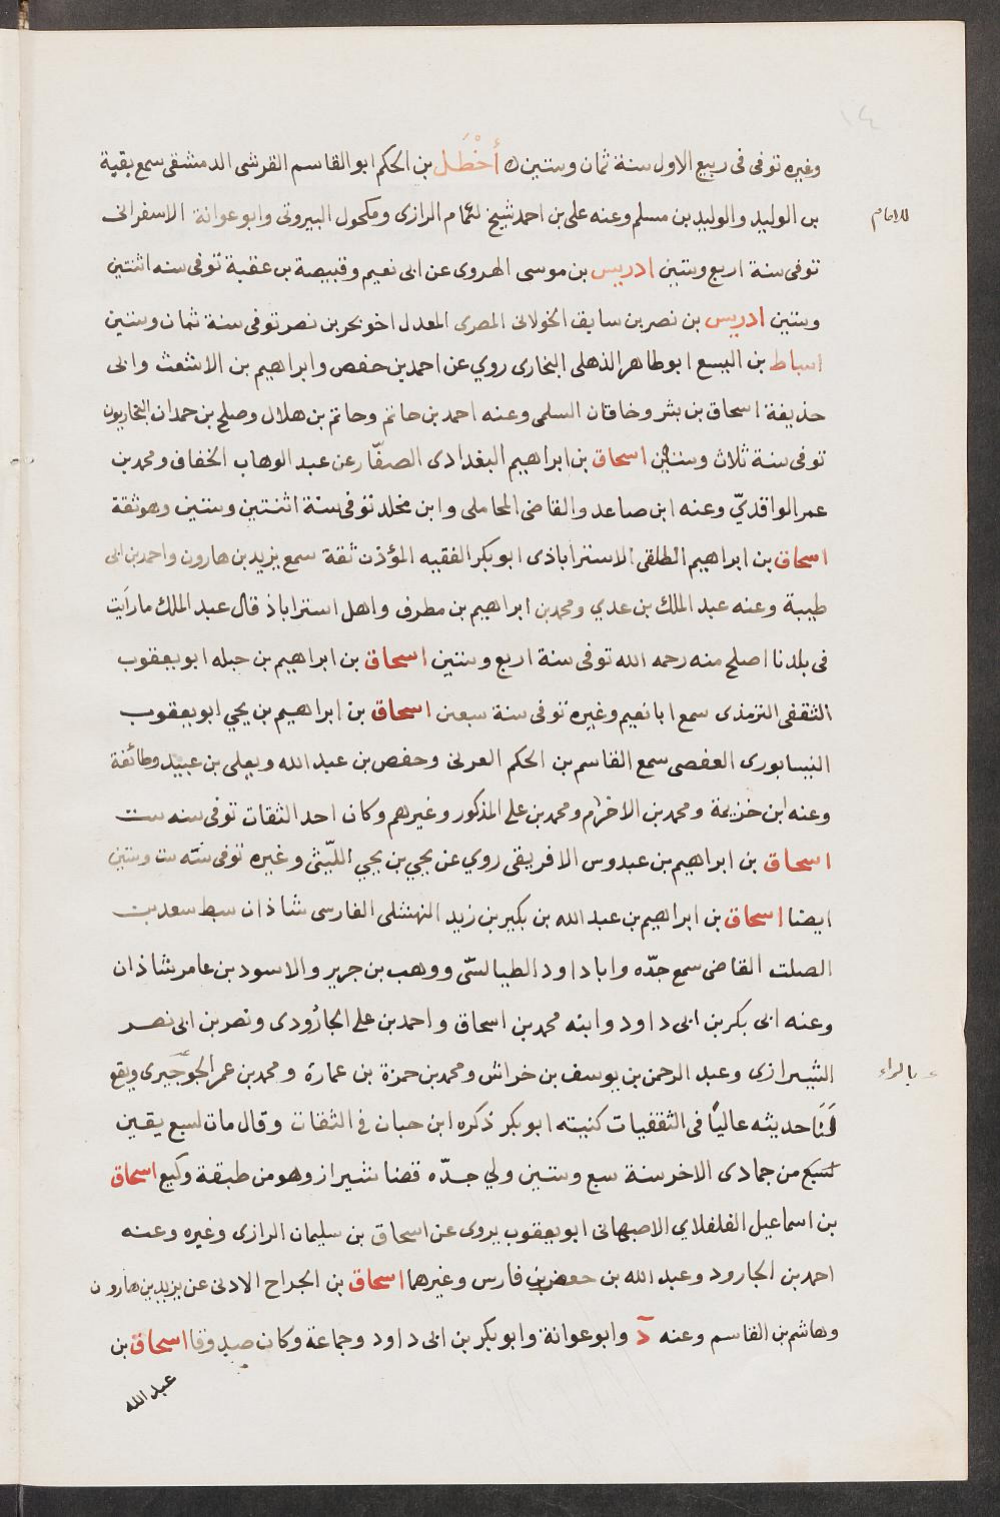 ١٤
وغيره توفى فى ربيع الاول سنة ثمان وستين ه أَخْطَل بن الحكم ابو القاسم القرشى الدمشقى سمع بقية
بن الوليد والوليد بن مسلم وعنه على بن احمد شيخ لتمام الرازى ومكحول البيروتى وابو عوانة الاسفرانى
توفى سنة اربع وستين ادريس بن موسى الهروى عن ابى نعيم وقبيصة بن عقبة توفى سنه اثنتين
وستين ادريس بن نصر بن سابق الخولانى المصرى المعدل اخو بحر بن نصر توفى سنة ثمان وستين
اسباط بن اليسع ابو طاهر الذهلى البخارى روي عن احمد بن حفص وابراهيم بن الاشعث وابى
حذيفة اسحاق بن بشر وخاقان السلمى وعنه احمد بن حاتم وحاتم بن هلال وصلح بن حمدان البخاريون
توفى سنة ثلاث وستين اسحاق بن ابراهيم البغدادى الصفّار عن عبد الوهاب الخفاف ومحمد بن
عمر الواقديّ وعنه ابن صاعد والقاضى المحاملى وابن مخلد توفى سنة اثنتين وستين وهو ثقة
اسحاق بن ابراهيم الطلقى الاستراباذى ابو بكر الفقيه المؤذن ثقة سمع يزيد بن هارون واحمد بن ابى
طيبة وعنه عبد الملك بن عدي ومحمد بن ابراهيم بن مطرف واهل استراباذ قال عبد الملك ما رأيت
فى بلدنا اصلح منه رحمه الله توفى سنة اربع وستين اسحاق بن ابراهيم بن جبله ابو يعقوب
الثقفى الترمذى سمع ابا نعيم وغيره توفى سنة سبعن اسحاق بن ابراهيم بن يحي ابو يعقوب
النيسابورى العفصى سمع القاسم بن الحكم العرنى وحفص بن عبد الله ويعلى بن عبيد وطائفة
وعنه ابن خزيمة ومحمد بن الاخرم ومحمد بن على المذكور وغيرهم وكان احد الثقات توفى سنه ست
اسحاق بن ابراهيم بن عبدوس الافريقى روي عن يحي بن يحي الليّثى وغيره توفى سنه ست وستين
ايضا اسحاق بن ابراهيم بن عبد الله بن بكير بن زيد النهشلى الفارسى شاذان سبط سعد بن
الصلت القاضى سمع جدّه وابا داود الطيالسّى ووهب بن جرير والاسود بن عامر شاذان
وعنه ابى بكر بن ابى داود وابنه محمد بن اسحاق واحمد بن على الجارُودى ونصر بن ابى نصر
الشيرازى وعبد الرحمن بن يوسف بن خراش ومحمد بن حمزة بن عمارة ومحمد بن عمر الجوجيرى ويقع
لنَا حديثه عاليًا فى الثقفيات كنيته ابو بكر ذكره ابن حبان فى الثقات وقال مات لسبع يقين
من جمادى الاخر سنة سبع وستين ولي جدّه قضا شيراز وهو من طبقة وكيع اسحاق
بن اسماعيل الفلفلاي الاصبهانى ابو يعقوب يروى عن اسحاق بن سليمان الرازى وغيره وعنه
احمد بن الجارود وعبد الله بن جعفر بن فارس وغيرهما اسحاق بن الجراح الادنى عن يزيد بن هارون
وهاشم بن القاسم وعنه دَ وابو عوانة وابو بكر بن ابى داود وجماعة وكان صدوقا اسحاق بن
عبد الله
للامام
بالراء